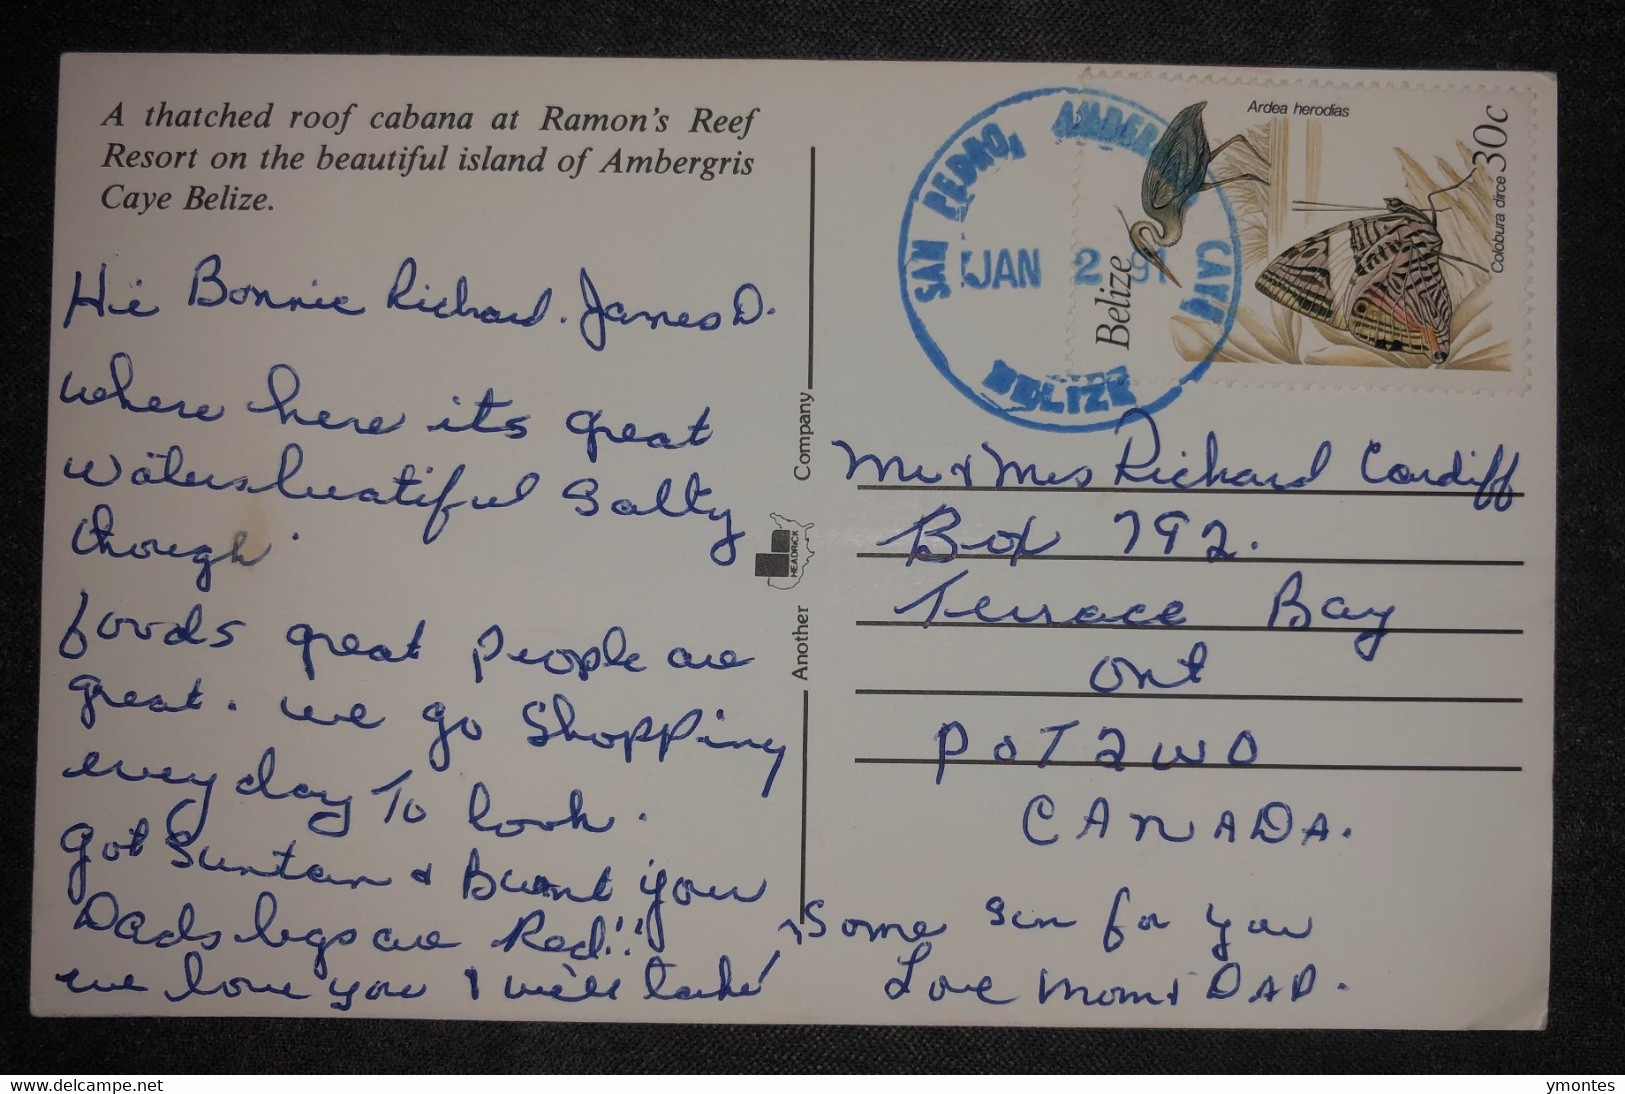 A thatched roof cabana at Ramon's Reef
Resort on the beautiful island of Ambergris
Caye Belize.
Hie Bonnie Richard. James D.
where here its great
waters beautiful salty
though.
foods great people are
great. we go shopping
every day To look.
got Suntan & Burnt your
Dads legs are Red!!
we love you & will take
Some sun for you
Love Mom & DAD.
Another
HEADRICK
Company
SAN PEDRO, AMBER CAYE
JAN 2 91
BELIZE
Ardea herodias
30c
Colobura dirce
Belize
Mr & Mrs Richard Cardiff
Box 792.
Terrace Bay
Ont
POT 2WO
CANADA.
delcampe.net
ymontes